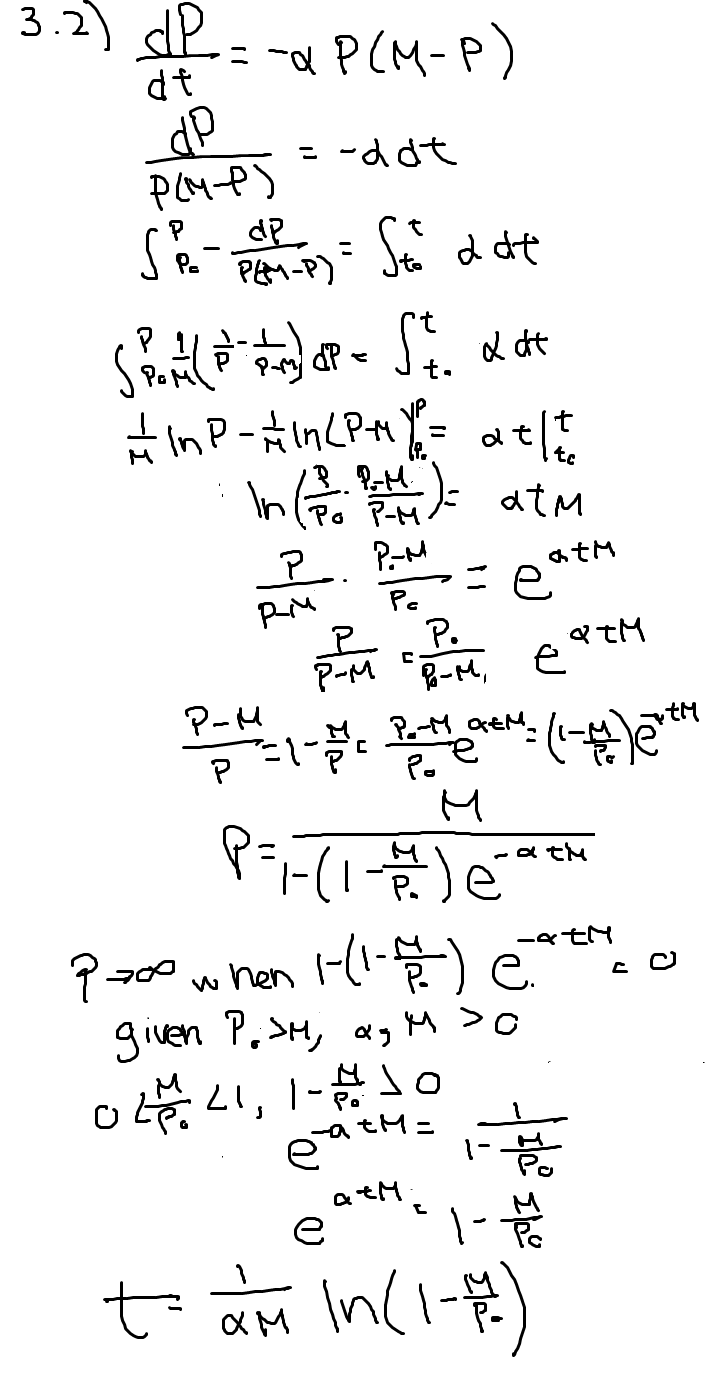 3.2) dP/dt = -α P(M-P)
dP/P(M-P) = -α dt
∫_{P₀}^{P} - dP/P(M-P) = ∫_{t₀}^{t} α dt
∫_{P₀}^{P} 1/M (1/P - 1/(P-M)) dP = ∫_{t₀}^{t} α dt
1/M ln P - 1/M ln(P-M)|_{P₀}^{P} = αt|_{t₀}^{t}
ln(P/P₀ · (P₀-M)/(P-M)) = αtM
P/(P-M) · (P₀-M)/P₀ = e^{αtM}
P/(P-M) = P₀/(P₀-M) e^{αtM}
(P-M)/P = 1 - M/P = (P₀-M)/P₀ e^{αtM} = (1 - M/P₀)e^{-αtM}
P = M/(1-(1-M/P₀)e^{-αtM})
P→∞ when 1-(1-M/P₀) e^{-αtM} = 0
given P₀>M, α, M >0
0 < M/P₀ < 1, 1 - M/P₀ > 0
e^{-αtM} = 1/(1 - M/P₀)
e^{αtM} = 1 - M/P₀
t = 1/αM ln(1 - M/P₀)